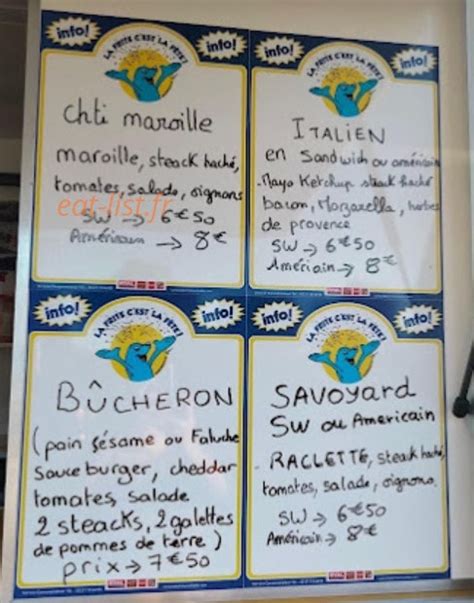 info!
LA FRITE C'EST LA FÊTE!
info!
Chti maroille
maroille, steack haché,
tomates, salade, oignons
SW → 6€50
Américain → 8€
eat-list.fr
info!
LA FRITE C'EST LA FÊTE!
info!
ITALIEN
en Sandwich ou américain
Mayo Ketchup steack haché
bacon, Mozzarella, herbes
de provence
SW → 6€50
Amériain → 8€
info!
LA FRITE C'EST LA FÊTE!
info!
BÛCHERON
(pain sésame ou Faluche
sauce burger, cheddar
tomates, salade
2 steacks, 2 galettes
de pommes de terre)
prix → 7€50
info!
LA FRITE C'EST LA FÊTE!
info!
SAVOYARD
SW ou Americain
- RACLETTE, steack haché,
tomates, salade, oignons.
SW → 6€50
Américain → 8€